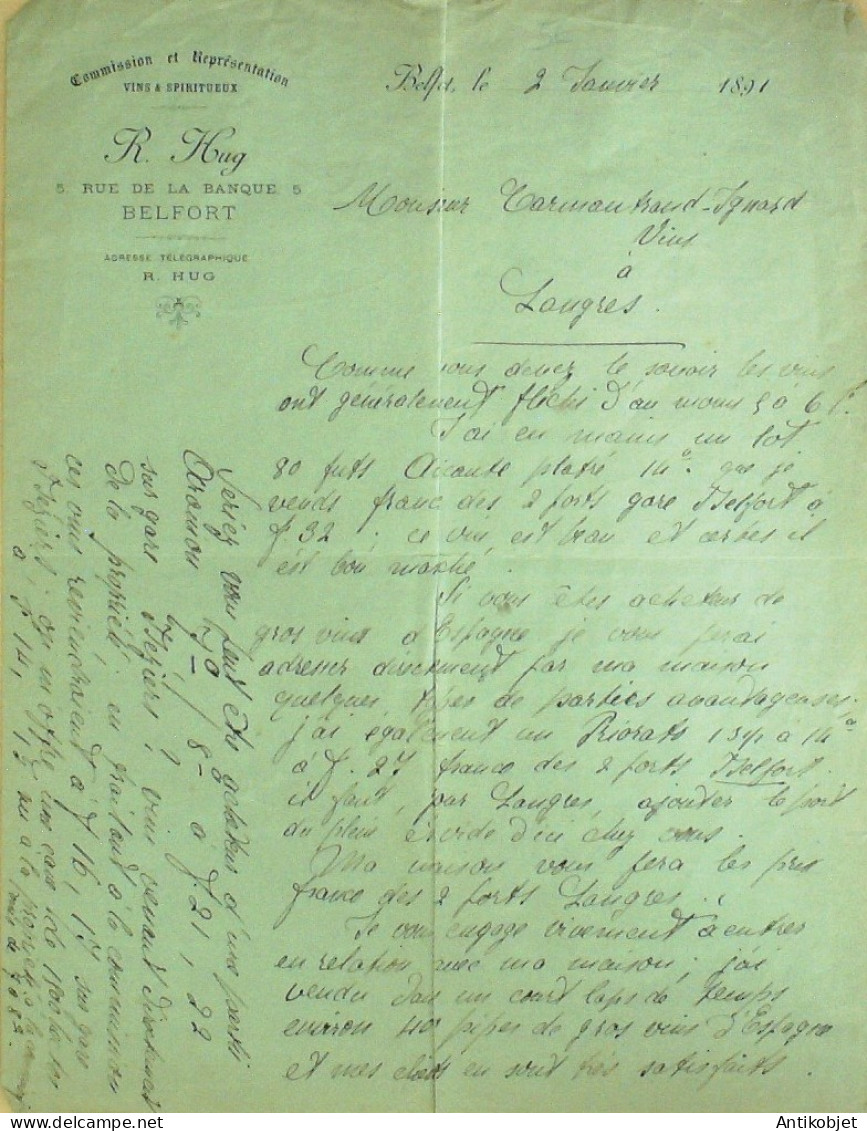 Commission et Représentation
VINS & SPIRITUEUX
R. Hug
5, RUE DE LA BANQUE, 5
BELFORT
ADRESSE TÉLÉGRAPHIQUE
R. HUG
Belfort, le 2 Janvier 1891
Monsieur
Vins
à
Langres.
Comme vous devez le savoir les vins
ont généralement fléchi d'au moins 5 à 6 f.
J'ai en mains un lot
80 futs Alicante platré 14°. que je
vends franc des 2 ports gare Belfort à
f. 32. ce vin est beau et certes il
est bon marché.
Si vous êtes acheteur de
gros vins d'Espagne je vous ferai
adresser directement par ma maison
quelques types de parties avantageuses
j'ai également un Priorato 13½ à 14°
à f. 27 franco des 2 ports Belfort.
il faut, par Langres, ajouter le port
du plein et vide d'ici chez vous.
Ma maison vous fera les prix
franco des 2 ports Langres.
Je vous engage vivement à entrer
en relation avec ma maison; j'ai
vendu dans un court laps de temps
environ 40 pipes de gros vins d'Espagne
et mes clients en sont très satisfaits.
Seriez vous peut être acheteur d'une partie
Aramon 7° - 8° à f. 21, 22
sur gare Béziers? vin venant directement
de la propriété; en traitant à la commission
ces vins reviendraient à f 16, 17 sur gare
Béziers; on m'offre une cave de
à f 14, à la propriété
Antikobjet